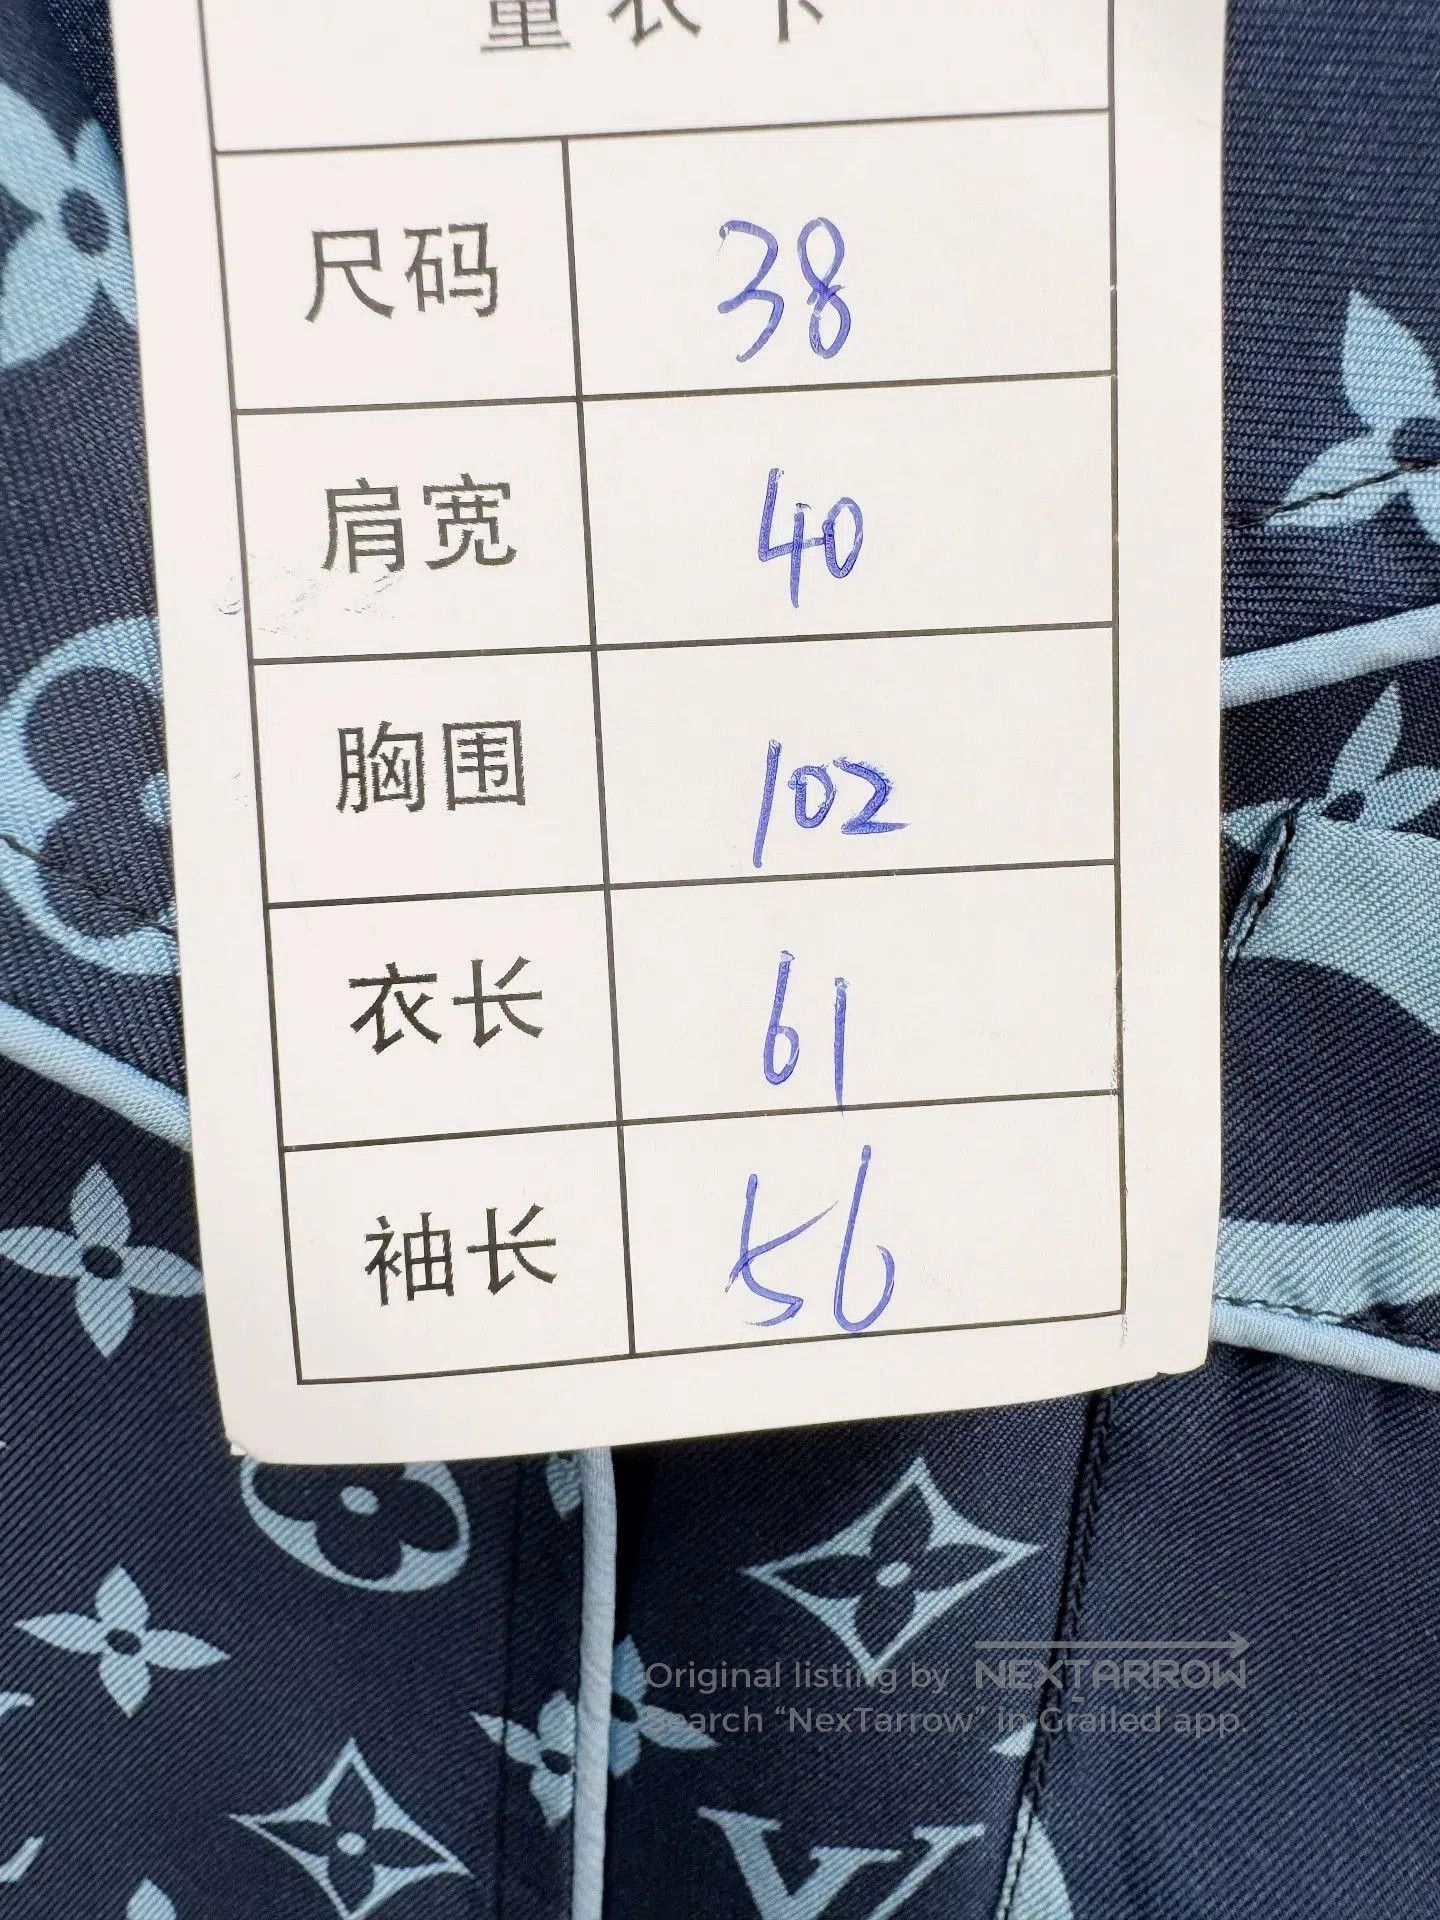 量衣卡
尺码 38
肩宽 40
胸围 102
衣长 61
袖长 56
Original listing by NEXTARROW
Search “NexTarrow” in Grailed app.
LV